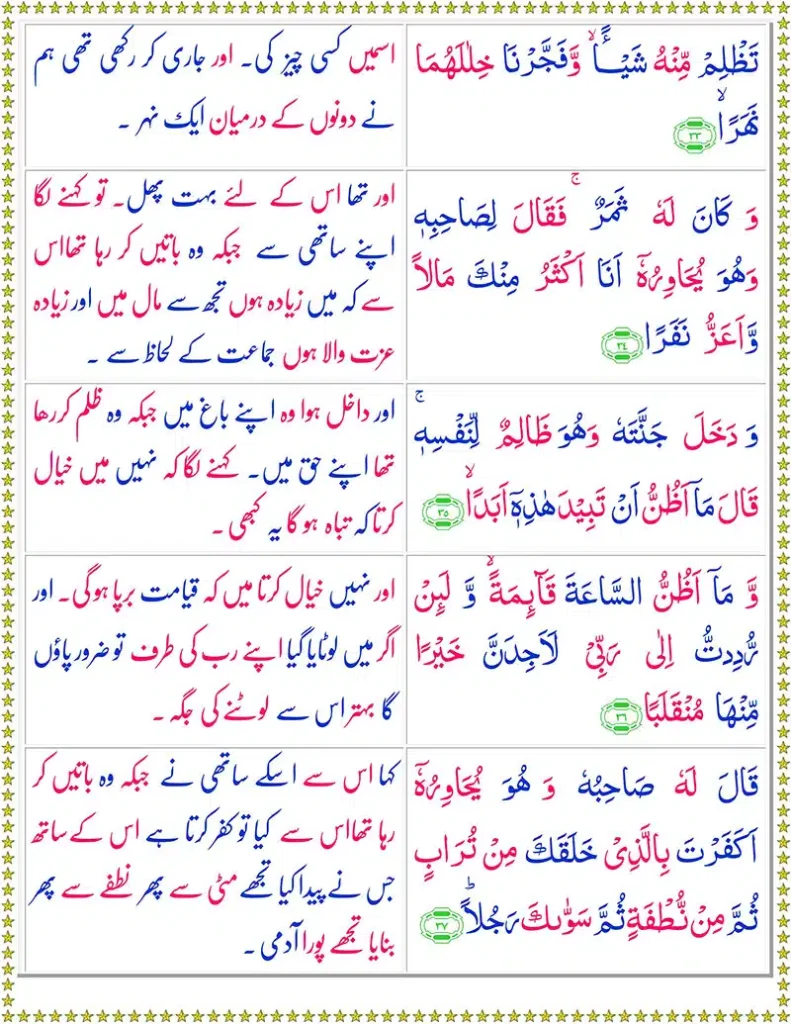 تَظْلِمْ مِّنْهُ شَيْـًٔا ۙ وَّفَجَّرْنَا خِلٰلَهُمَا
نَهَرًا ۙ ٣٣
اسمیں کسی چیز کی۔ اور جاری کر رکھی تھی ہم
نے دونوں کے درمیان ایک نہر ۔
وَ كَانَ لَهٗ ثَمَرٌ ۚ فَقَالَ لِصَاحِبِهٖ
وَهُوَ يُحَاوِرُهٗۤ اَنَا اَكْثَرُ مِنْكَ مَالًا
وَّاَعَزُّ نَفَرًا ٣٤
اور تھا اس کے لئے بہت پھل۔ تو کہنے لگا
اپنے ساتھی سے جبکہ وہ باتیں کر رہا تھااس
سے کہ میں زیادہ ہوں تجھ سے مال میں اور زیادہ
عزت والا ہوں جماعت کے لحاظ سے ۔
وَ دَخَلَ جَنَّتَهٗ وَهُوَ ظَالِمٌ لِّنَفْسِهٖ ۚ
قَالَ مَاۤ اَظُنُّ اَنْ تَبِيْدَ هٰذِهٖۤ اَبَدًا ۙ ٣٥
اور داخل ہوا وہ اپنے باغ میں جبکہ وہ ظلم کررھا
تھا اپنے حق میں۔ کہنے لگا کہ نہیں میں خیال
کرتا کہ تباہ ہو گا یہ کبھی ۔
وَّ مَاۤ اَظُنُّ السَّاعَةَ قَآىِٕمَةً ۙ وَّ لَىِٕنْ
رُّدِدتُّ اِلٰى رَبِّيْ لَاَجِدَنَّ خَيْرًا
مِّنْهَا مُنْقَلَبًا ٣٦
اور نہیں خیال کرتا میں کہ قیامت برپا ہوگی۔ اور
اگر میں لوٹایا گیا اپنے رب کی طرف تو ضرور پاؤں
گا بہتر اس سے لوٹنے کی جگہ ۔
قَالَ لَهٗ صَاحِبُهٗ وَ هُوَ يُحَاوِرُهٗۤ
اَكَفَرْتَ بِالَّذِيْ خَلَقَكَ مِنْ تُرَابٍ
ثُمَّ مِنْ نُّطْفَةٍ ثُمَّ سَوّٰىكَ رَجُلًا ؕ ٣٧
کہا اس سے اسکے ساتھی نے جبکہ وہ باتیں کر
رہا تھااس سے کیا تو کفر کرتا ہے اس کے ساتھ
جس نے پیدا کیا تجھے مٹی سے پھر نطفے سے پھر
بنایا تجھے پورا آدمی ۔